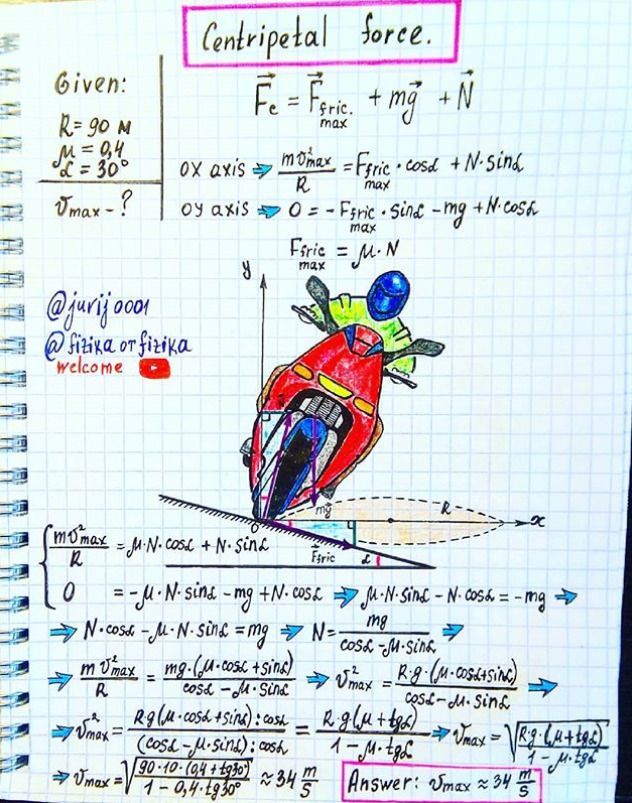 Centripetal force.
Given:
R = 90 м
μ = 0,4
α = 30°
υmax - ?
F⃗c = F⃗fric. max + mg⃗ + N⃗
OX axis ⇒ mυ²max / R = Ffric max · cosα + N·sinα
OY axis ⇒ 0 = -Ffric max · sinα - mg + N·cosα
Ffric max = μ·N
@jurij0001
@fizika от fizika
welcome
y
mg⃗
R
O
x
F⃗fric
α
mυ²max / R = μ·N·cosα + N·sinα
0 = -μ·N·sinα - mg + N·cosα ⇒ μ·N·sinα - N·cosα = -mg ⇒
⇒ N·cosα - μ·N·sinα = mg ⇒ N = mg / (cosα - μ·sinα) ⇒
⇒ mυ²max / R = mg·(μ·cosα + sinα) / (cosα - μ·sinα) ⇒ υ²max = R·g·(μ·cosα + sinα) / (cosα - μ·sinα) ⇒
⇒ υ²max = R·g(μ·cosα + sinα):cosα / (cosα - μ·sinα):cosα = R·g(μ + tgα) / (1 - μ·tgα) ⇒ υmax = √(R·g·(μ + tgα) / (1 - μ·tgα))
⇒ υmax = √(90·10·(0,4 + tg30°) / (1 - 0,4·tg30°)) ≈ 34 m/s
Answer: υmax ≈ 34 m/s